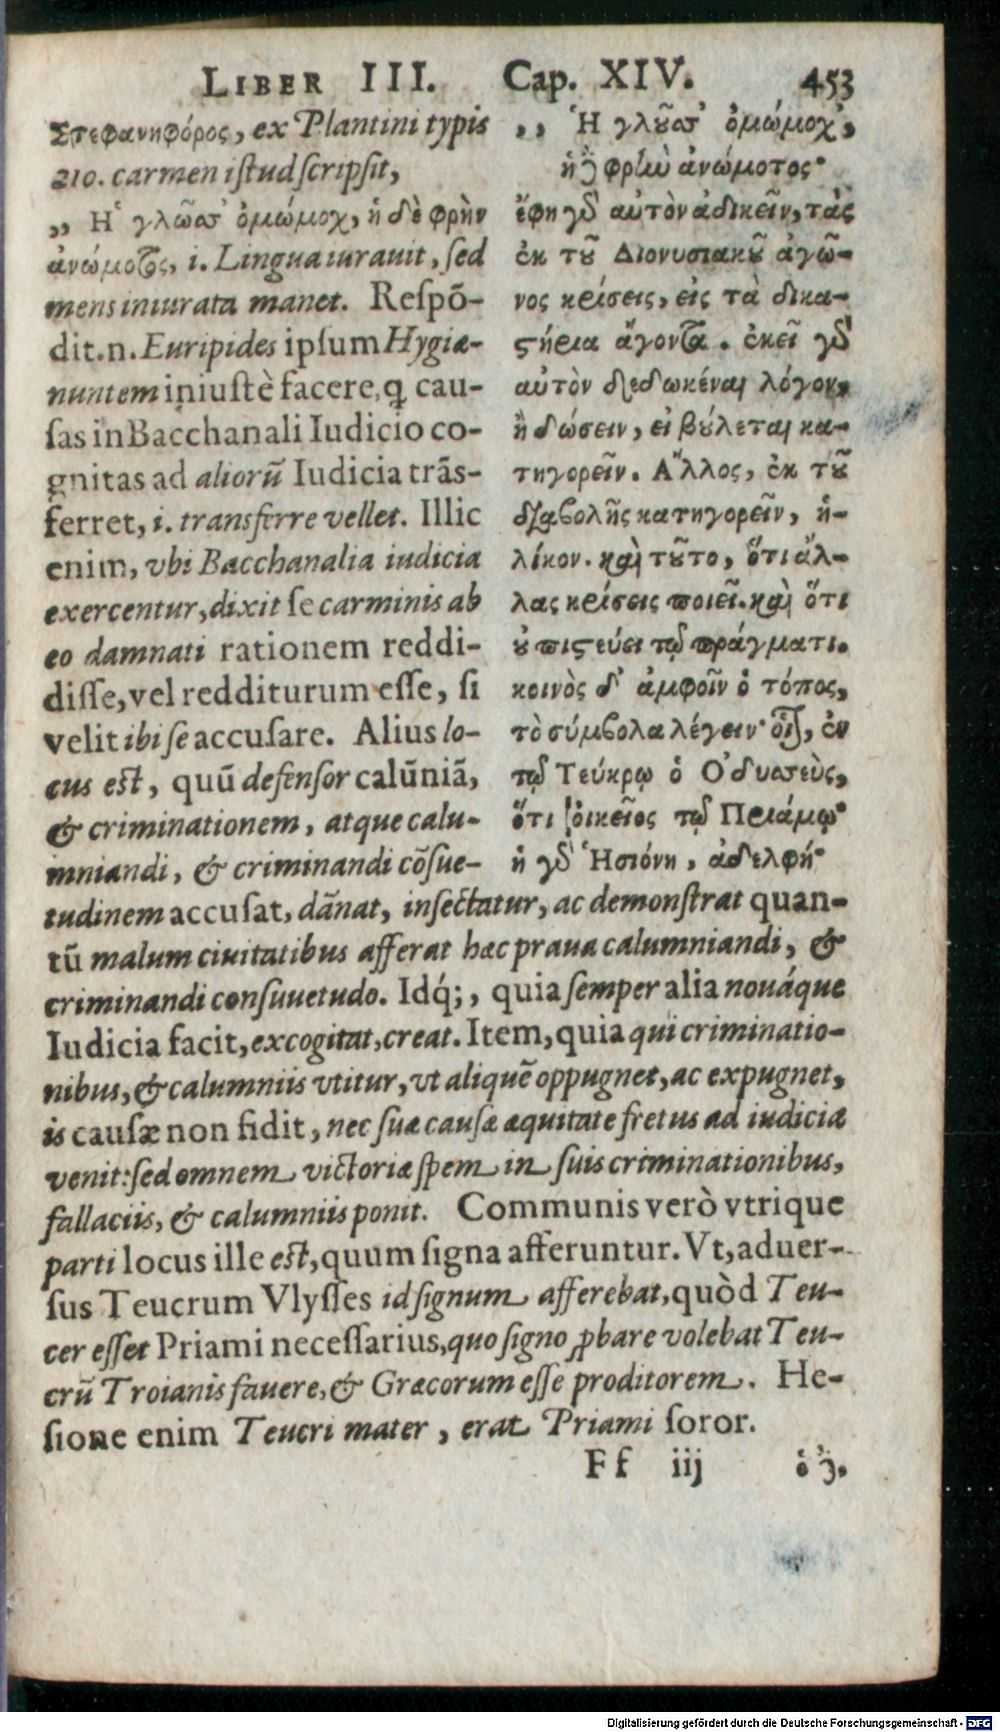 LIBER III. Cap. XIV. 453
Στεφανηφόρος, ex Plantini typis
210. carmen istud scripsit,
,, Ἡ γλῶσσ' ὀμώμοχ, ἡ δὲ φρὴν
ἀνώμοτος, i. Lingua iurauit, sed
mens iniurata manet. Respõ-
dit.n. Euripides ipsum Hygiæ-
nuntem iniustè facere, ꝙ cau-
sas in Bacchanali Iudicio co-
gnitas ad aliorũ Iudicia trãs-
ferret, i. transferre vellet. Illic
enim, vbi Bacchanalia iudicia
exercentur, dixit se carminis ab
eo damnati rationem reddi-
disse, vel redditurum esse, si
velit ibi se accusare. Alius lo-
cus est, quũ defensor calũniã,
& criminationem, atque calu-
mniandi, & criminandi cõsue-
,, Ἡ γλῶσσ' ὀμώμοχ,
ἡ δὲ φρὴν ἀνώμοτος·
ἔφη γὰρ αὐτὸν ἀδικεῖν, τὰς
ἐκ τοῦ Διονυσιακοῦ ἀγῶ-
νος κρίσεις, εἰς τὰ δικα-
στήρια ἄγοντα. ἐκεῖ γὰρ
αὐτὸν δεδωκέναι λόγον,
ἢ δώσειν, εἰ βούλεται κα-
τηγορεῖν. Ἄλλος, ἐκ τοῦ
διαβολῆς κατηγορεῖν, ἡ-
λίκον. καὶ τοῦτο, ὅτι ἀλ-
λας κρίσεις ποιεῖ. καὶ ὅτι
οὐ πιστεύει τῷ πράγματι.
κοινὸς δ' ἀμφοῖν ὁ τόπος,
τὸ σύμβολα λέγειν· οἷον, ἐν
τῷ Τεύκρῳ ὁ Ὀδυσσεὺς,
ὅτι οἰκεῖος τῷ Πριάμῳ·
ἡ γὰρ Ἡσιόνη, ἀδελφή·
tudinem accusat, dãnat, insectatur, ac demonstrat quan-
tũ malum ciuitatibus afferat hæc praua calumniandi, &
criminandi consuuetudo. Idq́;, quia semper alia nouáque
Iudicia facit, excogitat, creat. Item, quia qui criminatio-
nibus, & calumniis vtitur, vt aliquẽ oppugnet, ac expugnet,
is causæ non fidit, nec suæ causæ æquitate fretus ad iudicia
venit: sed omnem victoriæ spem in suis criminationibus,
fallaciis, & calumniis ponit. Communis verò vtrique
parti locus ille est, quum signa afferuntur. Vt, aduer-
sus Teucrum Vlysses id signum afferebat, quòd Teu-
cer esset Priami necessarius, quo signo ꝓbare volebat Teu-
crũ Troianis fauere, & Græcorum esse proditorem. He-
sione enim Teucri mater, erat Priami soror.
Ff iij ὁ δὲ,
Digitalisierung gefördert durch die Deutsche Forschungsgemeinschaft - DFG